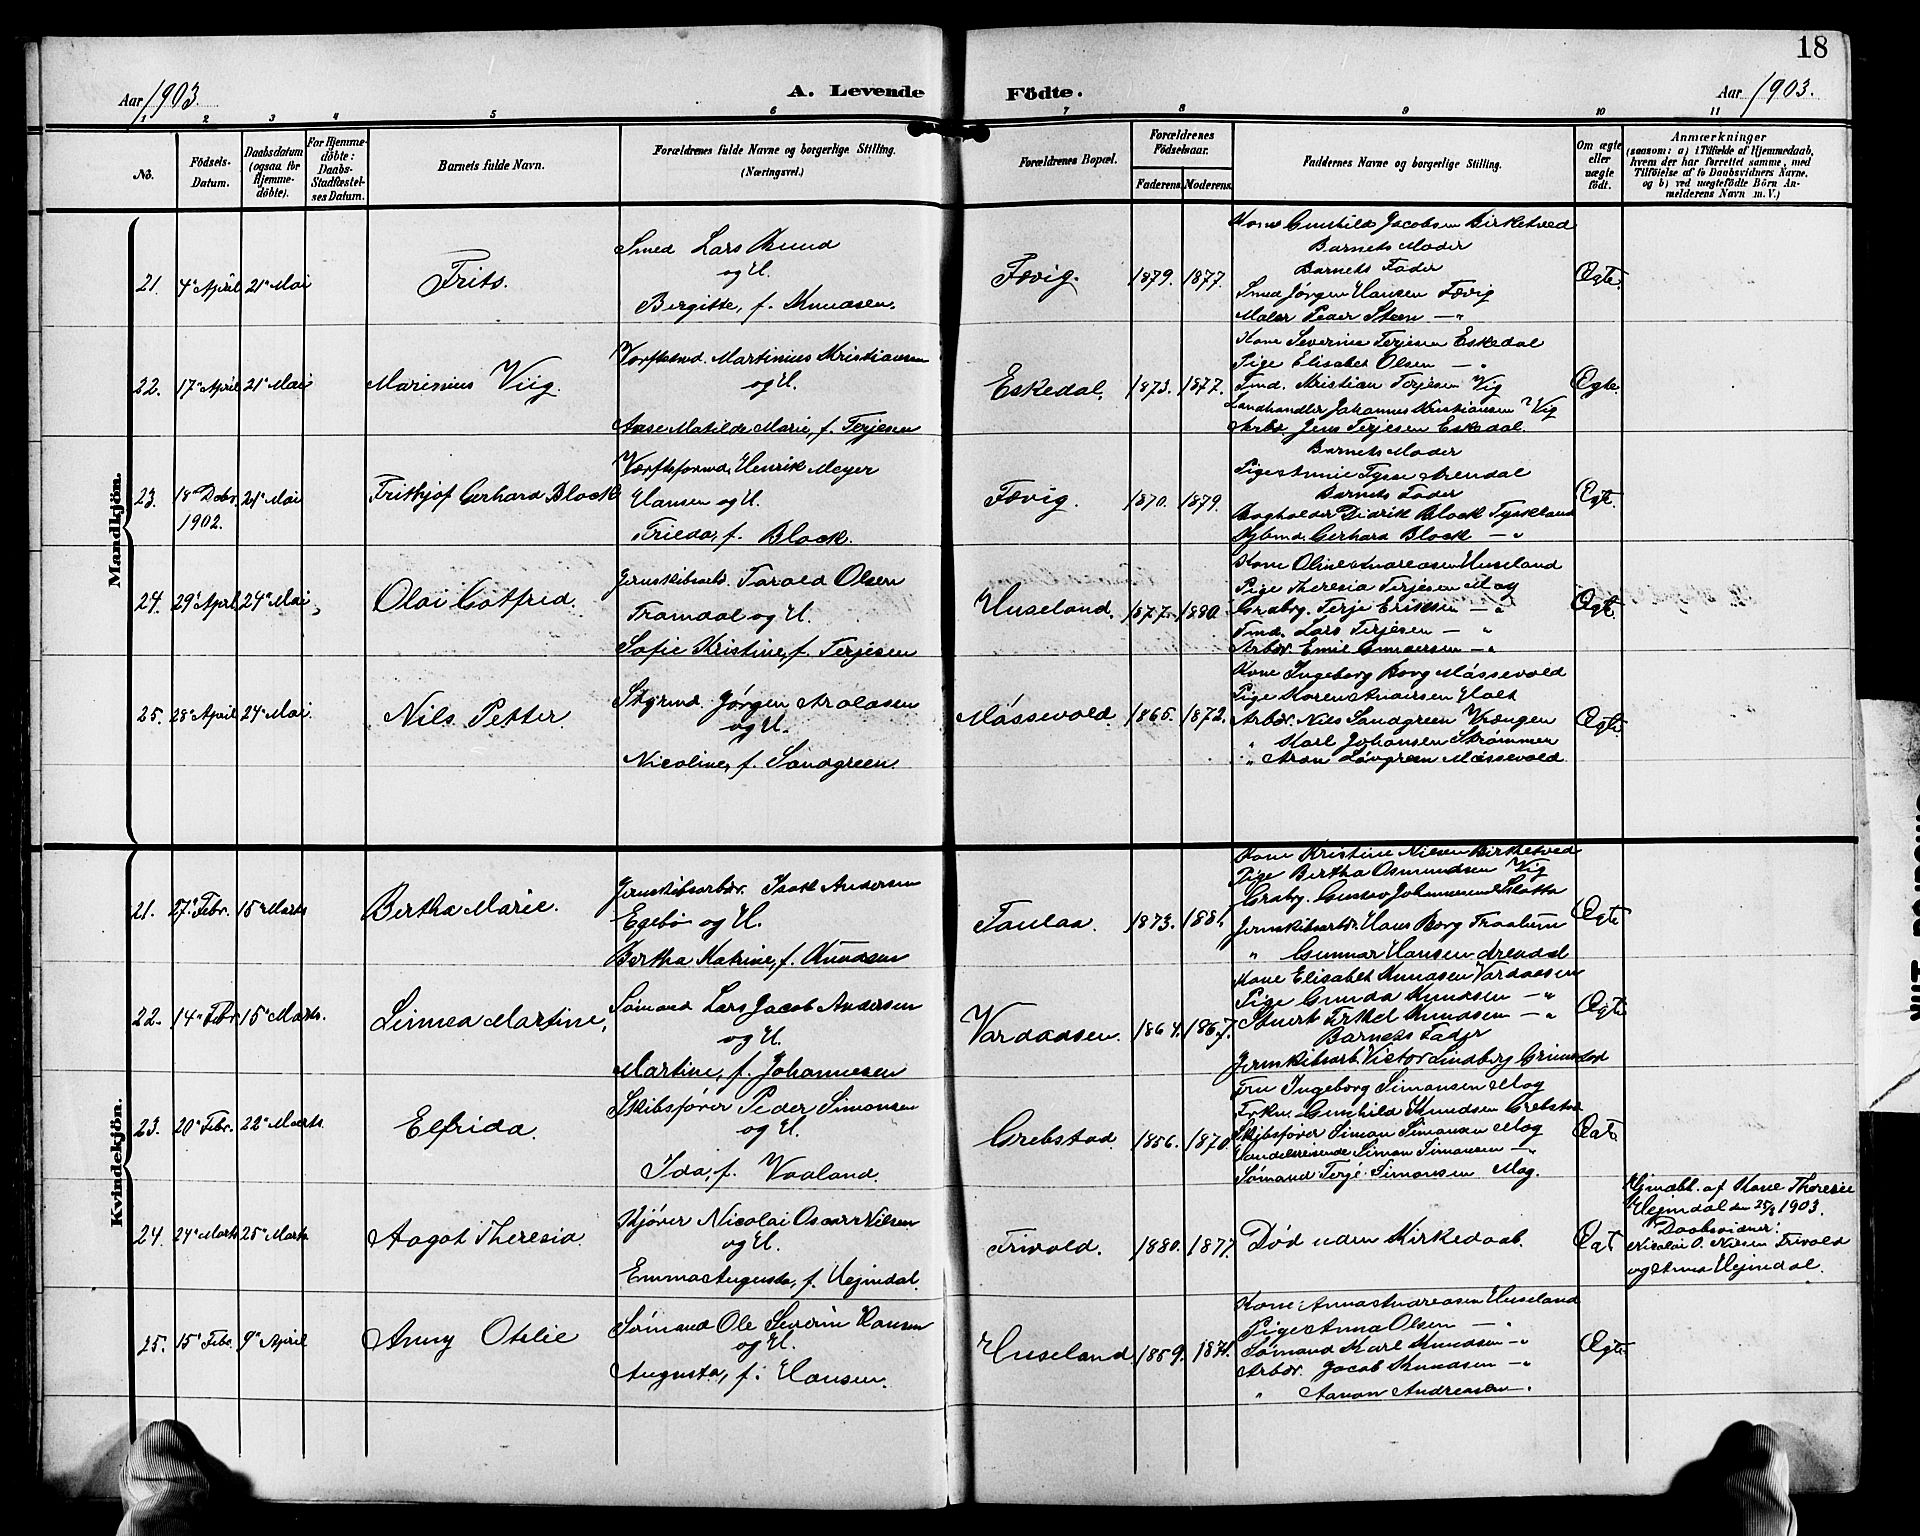 18
Aar 1903. A. Levende Födte. Aar 1903.
1 2 3 4 5 6 7 8 9 10 11
No. Födsels-Datum. Daabsdatum (ogsaa for Hjemme-döbte). For Hjemme-döbte: Daabs-Stadfæstel-ses Datum. Barnets fulde Navn. Forældrenes fulde Navne og borgerlige Stilling. (Næringsvei.) Forældrenes Bopæl. Forældrenes Födselsaar. Faderens. Moderens. Faddernes Navne og borgerlige Stilling. Om ægte eller uægte födt. Anmærkninger (saasom: a) i Tilfælde af Hjemmedaab, hvem der har forrettet samme, med Tilföielse af to Daabsvidners Navne, og b) ved uægtefödte Börn An-melderens Navn m. V.)
Mandkjön.
21. 4' April 21' Mai Frits. Smed Lars Rund
og H.
Bergitte, f. Knudsen.
Fævig. 1879. 1877.
Kone Gunhild Jacobsen Birketved
Barnets Moder
Barnets Fader
Smed Jørgen Hansen Fævig
Maler Peder Steen — "
Ægte.
22. 17' April 21' Mai Marinius Viig. Værftsmd. Martinius Kristiansen
og H.
Aase Matilde Marie, f. Terjesen
Eskedal. 1873. 1877.
Kone Severine Terjesen Eskedal
Pige Elisabet Olsen — "
Tmd. Kristian Terjesen Vig
Landhandler Johannes Kristiansen Vig
Arbdr Jens Terjesen Eskedal.
Ægte.
23. 18' Decbr. 1902. 21' Mai Frithjof Gerhard Block Værftsformd. Henrik Meyer
Hansen og H.
Frieda, f. Block.
Fævig. 1870. 1879.
Barnets Moder
Pige Annie Tysse Arendal
Barnets Fader
Bogholder Didrik Block Tyskland
Gerhard Block — "
Ægt.
24. 29' April 24' Mai Olai Gotfred. Jernskibsarb. Torald Olsen
Tramdal og H.
Sofie Kristine, f. Terjesen
Huseland. 1877. 1880.
Kone Oline Andreasen Huseland
Pige Theresia Terjesen Moy
Graborg. Terje Eriksen — "
Tmd. Lars Terjesen — "
Arbdr. Emil Gundersen — "
Ægt.
25. 28' April 24' Mai Nils Petter. Styrmd. Jørgen Araldsen
og H.
Nicoline, f. Sandgreen.
Måssevold. 1865. 1872.
Kone Ingeborg Borg Måssevold
Pige Karen Andersen Holt
Arbdr. Nils Sandgreen Vrængen
" Karl Johansen Strømmen
" Aron Løvgreen Måssevold.
Ægte
Kvindekjön.
21. 27' Febr. 15' Marts Bertha Marie. Jernskibsarbdr. Isak Andersen
Egebø og H.
Bertha Katrine, f. Knudsen
Faulaa. 1873. 1881.
Kone Kristine Nilsen Birketved
Pige Bertha Osmundsen Vig
Grabg. Gustav Johannesen Slotta
Jernskibsarbdr. Hans Borg
" Gunnar Hansen Arendal
Ægte
22. 14' Febr 15' Marts. Linnea Martine. Sømand Lars Jacob Andersen
og H.
Martine, f. Johannesen
Vardaasen. 1864. 1867.
Kone Elisabet Knudsen Vardaasen
Pige Gunda Knudsen — "
Stuert Terkel Knudsen — "
Barnets Fader
Jernskibsarb. Victor Lindberg Grimstad
Ægte
23. 20' Febr. 22' Marts Elfrida. Skibsfører Peder Simonsen
og H.
Ida, f. Vaaland.
Grebstad. 1856. 1870.
Fru Ingeborg Simonsen Moy
Frkn. Gunhild Knudsen Grebstad
Skibsfører Simon Simonsen Moy
Handelsreisende Simon Simonsen — "
Sømand Terje Simonsen Moy.
Ægte
24. 24' Marts 25' Marts Aagot Theresia. Skjører Nicolai Oscar Nilsen
og H.
Emma Augusta, f. Hejmdal.
Trivold. 1880. 1877.
Død uden Kirkedaab.
Ægt
Hjmdbt. af Kone Theresie
Hejmdal den 25/3 1903.
Daabsvidner:
Nicolai O. Nilsen Trivold
og Anna Hejmdal.
25. 15' Febr. 9' April Anny Otelie Sømand Ole Severin Hansen
og H.
Augusta, f. Hansen.
Huseland 1859. 1871.
Kone Anna Andreasen Huseland
Pige Anna Olsen — "
Sømand Karl Knudsen — "
Arbdr. Jacob Knudsen — "
" Aanon Andreasen — "
Ægte